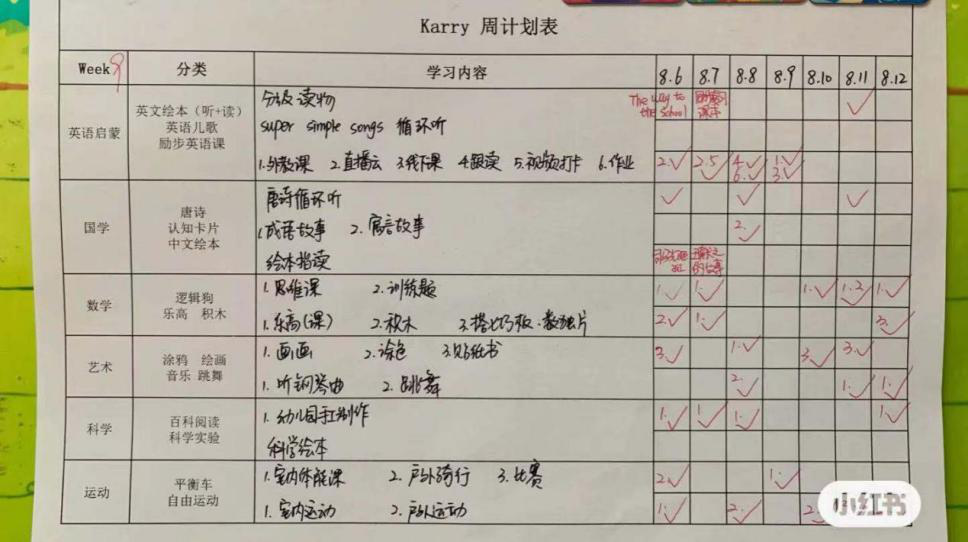 Karry 周计划表
Week9 分类 学习内容 8.6 8.7 8.8 8.9 8.10 8.11 8.12
英语启蒙
英文绘本（听+读）
英语儿歌
励步英语课
分级读物 The way to the school ✓
super simple songs 循环听
1.外教课 2.直播云 3.线下课 4.跟读 5.视频打卡 6.作业 2.✓ 2.5✓ 4✓ 6.✓ 1.✓ 3.✓
国学
唐诗
认知卡片
中文绘本
唐诗循环听 ✓ ✓ ✓
1.成语故事 2.寓言故事 2.✓
绘本指读
数学
逻辑狗
乐高 积木
1.思维课 2.训练题 1.✓ 1.✓ 1.✓ 1.2✓ 1.✓
1.乐高(课) 2.积木 3.搭七巧板、数独片 2.✓ 1.✓ 3.✓
艺术
涂鸦 绘画
音乐 跳舞
1.画画 2.涂色 3.贴纸书 3.✓ 1.✓ 3.✓ 3.✓
1.听钢琴曲 2.跳舞 2.✓ 1.✓ 1.✓
科学
百科阅读
科学实验
1.幼儿园手工制作 1.✓ 1.✓ 1.✓ 1.✓
科学绘本
运动
平衡车
自由运动
1.室内体能课 2.户外骑行 3.比赛 2.✓ 1.✓
1.室内运动 2.户外运动 1.✓ 2.✓ 2.
小红书